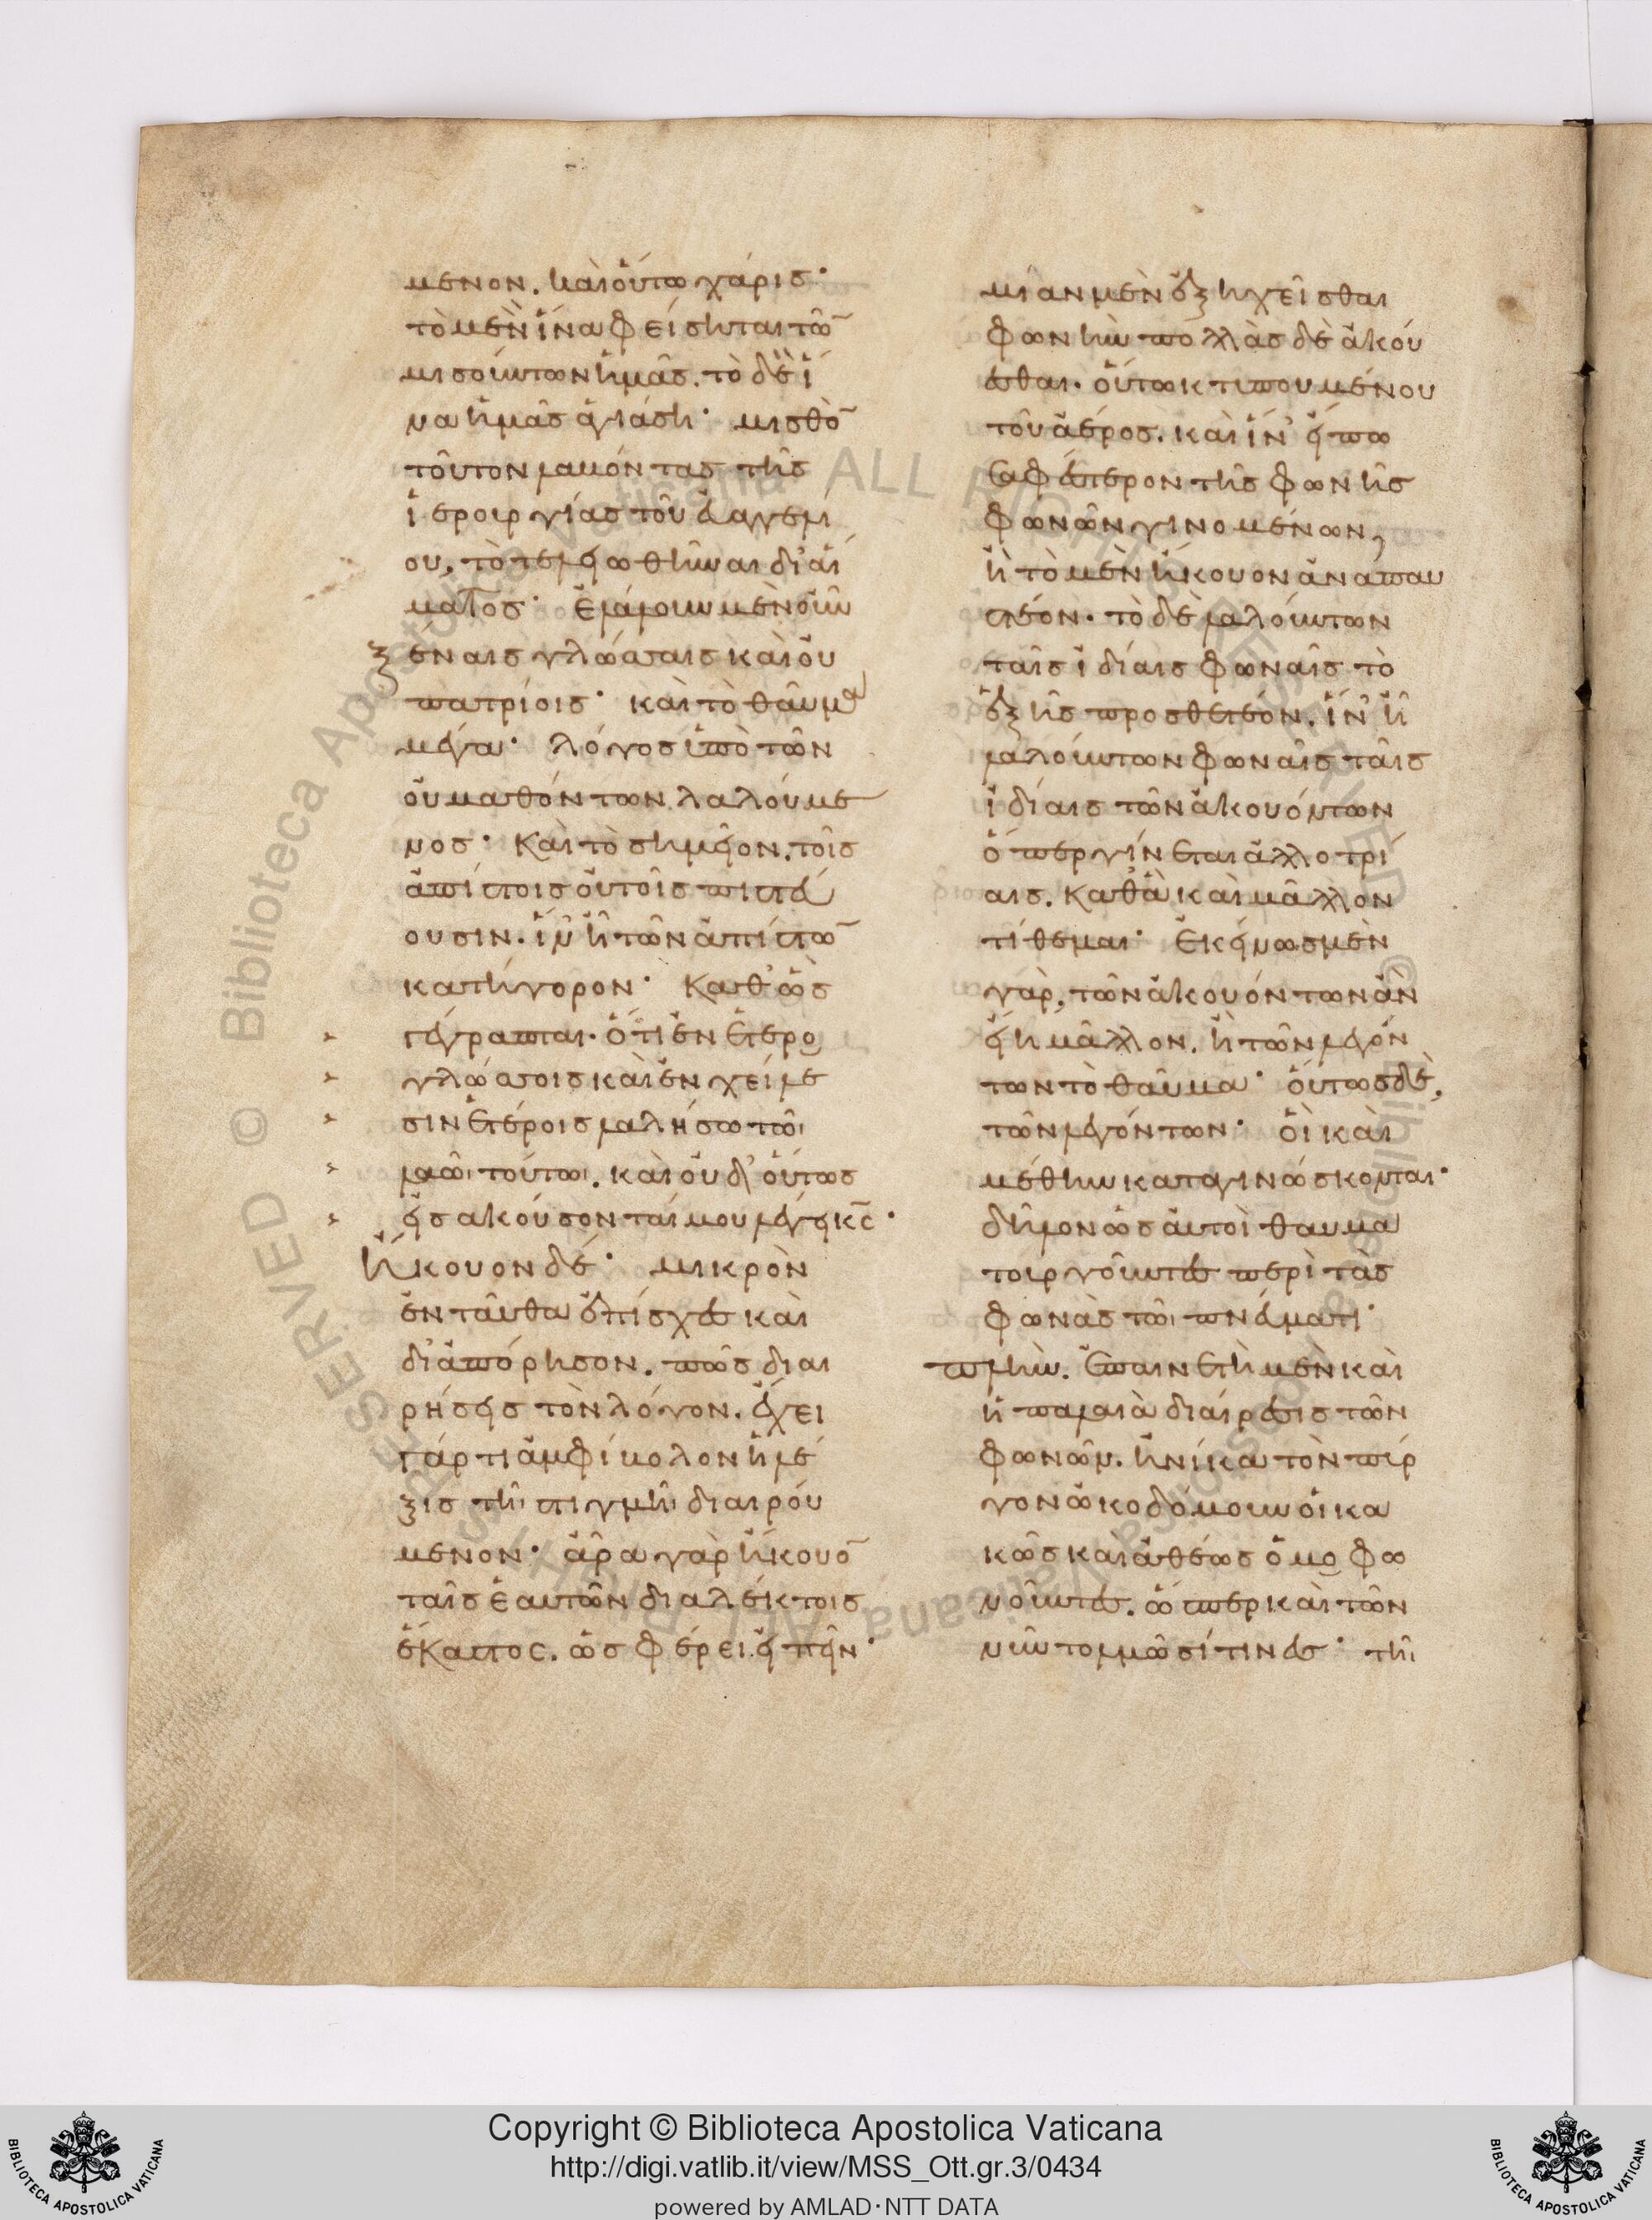 μενον. καὶ οὕτω χάρισ·
τὸ μὲν ἵνα φείσηται τῶ̅
μισούντων ἡμᾶσ. τὸ δὲ ἵ
να ἡμᾶσ ἁγιάση· μισθὸ̅
τοῦτον λαβόντασ τῆσ
ἱερουργίασ τοῦ εὐαγγελί
ου, τὸ τελειωθῆναι δι' αἵ
ματοσ· ἐλάλουν μὲν οὖν
ξέναισ γλώσσαισ καὶ οὐ
πατρίοισ· καὶ τὸ θαῦμα
μέγα· λόγοσ ὑπὸ τῶν
οὐ μαθόντων λαλούμε
νοσ· καὶ τὸ σημεῖον. τοῖσ
ἀπίστοισ οὐ τοῖσ πιστεύ
ουσιν. ἵν' ἦ τῶν ἀπίστω̅
κατήγορον· καθὼσ
γέγραπται. ὅτι ἐν ἑτερο
γλώσσοισ καὶ ἐν χείλε
σιν ἑτέροισ λαλήσω τῶι
λαῶι τούτωι. καὶ οὐδ' οὕτωσ
εἰσακούσονταί μου λέγει κ̅ς̅·
ἤκουον δέ· μικρὸν
ἐνταῦθα ἐπίσχεσ καὶ
διαπόρησον. πῶσ διαι
ρήσεισ τὸν λόγον. ἔχει
γάρ τι ἀμφίβολον ἡ λέ
ξισ τῆι στιγμῆι διαιρού
μενον· ἆρα γὰρ ἤκουο̅
ταῖσ ἑαυτῶν διαλέκτοισ
ἕκαστος. ὡσ φέρει εἰπεῖν·
μίαν μὲν ἐξηχεῖσθαι
φωνὴν πολλὰσ δὲ ἀκού
εσθαι. οὕτω κτυπουμένου
τοῦ ἀέροσ. καὶ ἵν' εἴπω
σαφέστερον τῆσ φωνῆσ
φωνῶν γινομένων,
ἢ τὸ μὲν ἤκουον ἀναπαυ
στέον. τὸ δὲ λαλούντων
ταῖσ ἰδίαισ φωναῖσ τὸ
ἑξῆσ προσθετέον. ἵν' ἦ
λαλούντων φωναῖσ ταῖσ
ἰδίαισ τῶν ἀκουόντων
ὅπερ γίνεται ἀλλοτρί
αισ. καθὰ καὶ μᾶλλον
τίθεμαι· ἐκείνωσ μὲν
γὰρ, τῶν ἀκουόντων ἂν
εἴη μᾶλλον. ἢ τῶν λεγόν
των τὸ θαῦμα· οὕτωσ δὲ,
τῶν λεγόντων· οἳ καὶ
μέθην καταγινώσκονται·
δῆλον ὡσ αὐτοὶ θαυμα
τουργοῦντεσ περὶ τὰσ
φωνὰσ τῶι πνεύματι·
πλὴν. ἐπαινετὴ μὲν καὶ
ἡ παλαιὰ διαίρεσισ τῶν
φωνῶν. ἡνίκα τὸν πύρ
γον ὠκοδόμουν οἱ κα
κῶσ καὶ ἀθέωσ ὁμοφω
νοῦντεσ. ὥσπερ καὶ τῶν
νῦν τολμῶσί τινεσ· τῆι
Copyright © Biblioteca Apostolica Vaticana
http://digi.vatlib.it/view/MSS_Ott.gr.3/0434
powered by AMLAD·NTT DATA